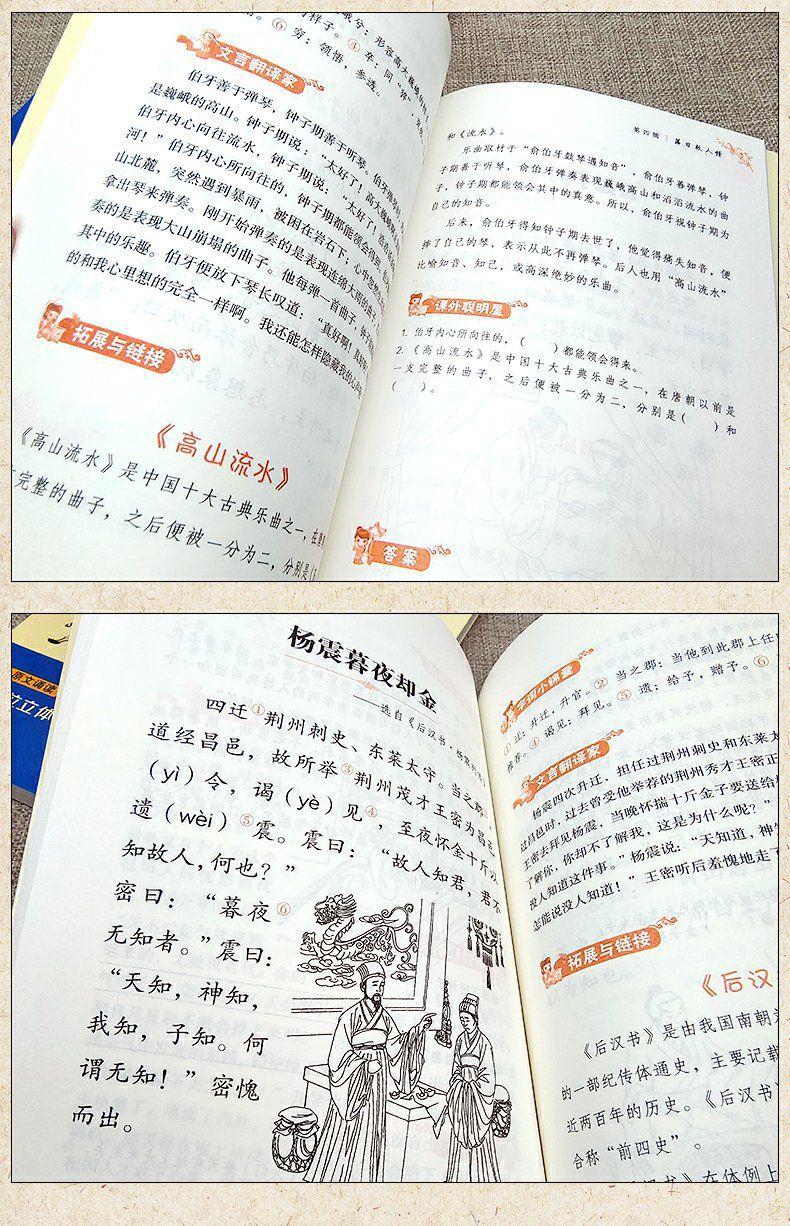 形容高大巍峨的样子。④卒：同“猝”，
样子。⑥穷：领悟，参透。
文言翻译家
伯牙善于弹琴，钟子期善于听琴。伯牙弹琴
是巍峨的高山。钟子期说：“太好了！高大巍峨
伯牙内心向往流水，钟子期说：“太好了！
河！”伯牙内心所向往的，钟子期都能领会得
山北麓，突然遇到暴雨，被困在岩石下，心中
拿出琴来弹奏。刚开始弹奏的是表现连绵大雨的曲子
奏的是表现大山崩塌的曲子。他每弹一首曲子，钟子
其中的乐趣。伯牙便放下琴长叹道：“真好啊！真好
的和我心里想的完全一样啊。我还能怎样隐藏我的心
拓展与链接
《高山流水》
《高山流水》是中国十大古典乐曲之一，在唐
完整的曲子，之后便被一分为二，分别是《
第四辑 篇目教人情
和《流水》。
乐曲取材于“俞伯牙鼓琴遇知音”，俞伯牙善弹琴，钟
子期善于听琴，俞伯牙弹奏表现巍峨高山和滔滔流水的曲
子，钟子期都能领会其中的真意。所以，俞伯牙视钟子期为
自己的知音。
后来，俞伯牙得知钟子期去世了，他觉得痛失知音，便
摔了自己的琴，表示从此不再弹琴。后人也用“高山流水”
比喻知音、知己，或高深绝妙的乐曲。
课外聪明屋
1. 伯牙内心所向往的，（ ）都能领会得来。
2.《高山流水》是中国十大古典乐曲之一，在唐朝以前是
一支完整的曲子，之后便被一分为二，分别是（ ）和
（ ）。
答案
原文诵读
立体
杨震暮夜却金
——选自《后汉书·杨震列传》
四迁①荆州刺史、东莱太守。当之郡②，
道经昌邑，故所举③荆州茂才王密为昌邑
(yì)令，谒(yè)见④，至夜怀金十斤以
遗(wèi)⑤震。震曰：“故人知君，君不
知故人，何也？”
密曰：“暮夜⑥
无知者。”震曰：
“天知，神知，
我知，子知。何
谓无知！”密愧
而出。
字词小锦囊
①迁：升迁，升官。②当之郡：当他到此郡上任
推荐。④谒见：拜见。⑤遗：给予，赠予。⑥
文言翻译家
杨震四次升迁，担任过荆州刺史和东莱太
过昌邑时，过去曾受他举荐的荆州秀才王密正
王密去拜见杨震，当晚怀揣十斤金子要送给
了解你，你却不了解我，这是为什么呢？”
没人知道这件事。”杨震说：“天知道，神
怎能说没人知道！”王密听后羞愧地走了
拓展与链接
《后汉
《后汉书》是由我国南朝
的一部纪传体通史，主要记载
近两百年的历史。《后汉书》
合称“前四史”。
汉书》在体例上